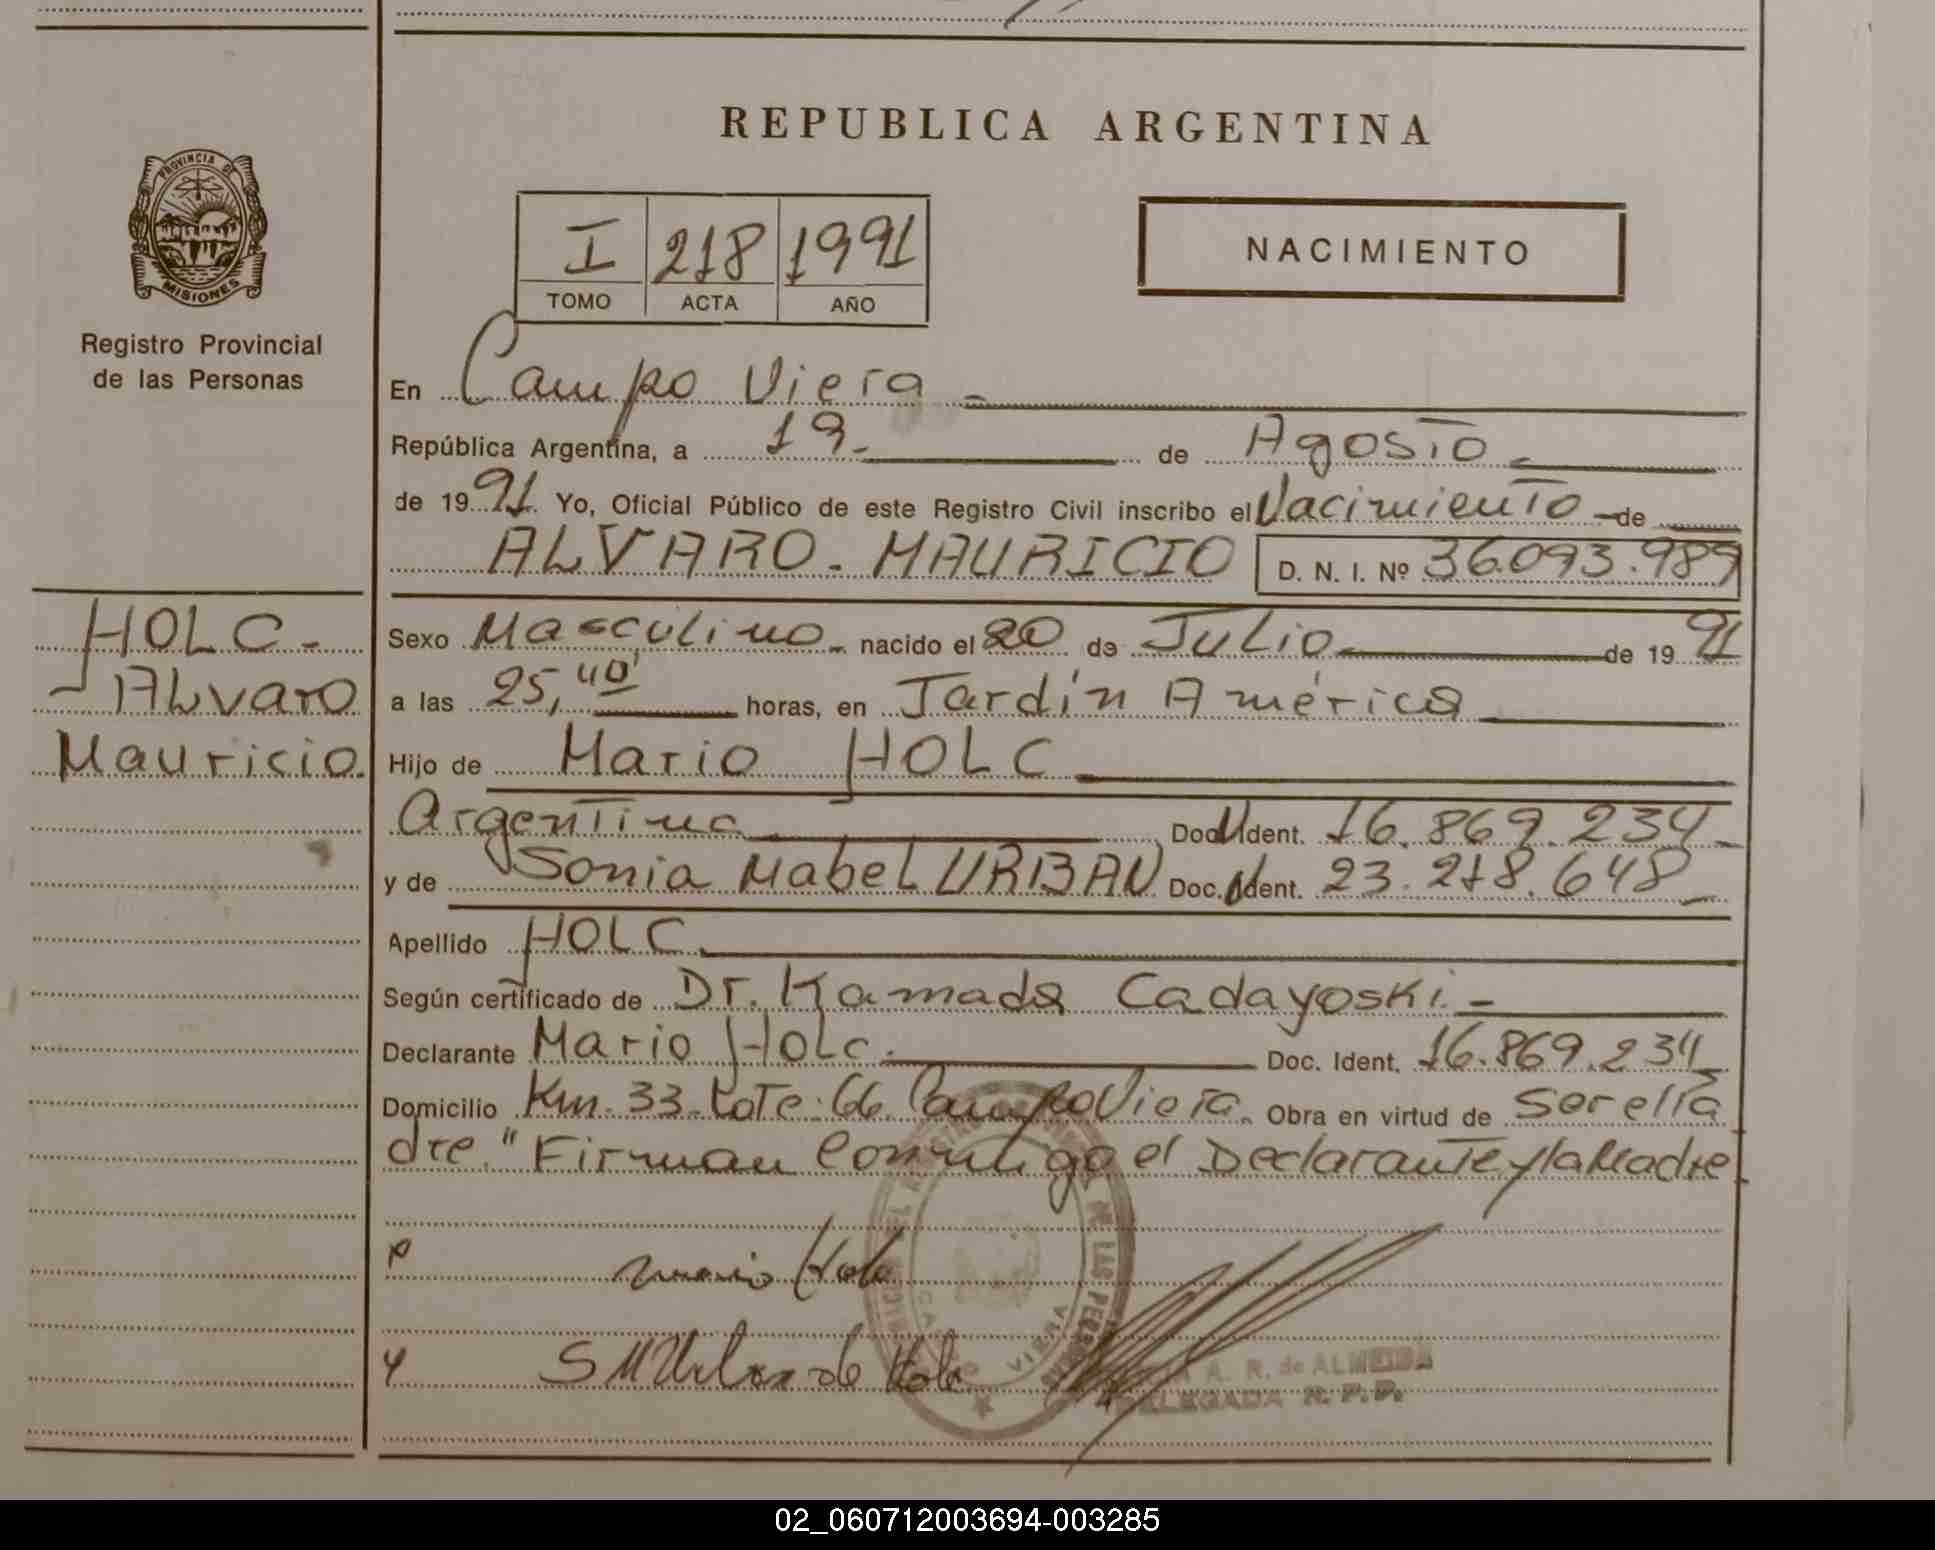 REPUBLICA ARGENTINA
PROVINCIA DE
MISIONES
Registro Provincial
de las Personas
I 218 1991
TOMO ACTA AÑO
NACIMIENTO
En Campo Viera -
República Argentina, a 19- de Agosto -
de 1991. Yo, Oficial Público de este Registro Civil inscribo el Nacimiento - de
ALVARO - MAURICIO D. N. I. Nº 36.093.989
HOLC -
- ALvaro
Mauricio.
Sexo Masculino - nacido el 20 de Julio - de 1991
a las 25,40' horas, en Jardín América
Hijo de Mario HOLC
Argentina Doc. Ident. 16.869.234 -
y de Sonia Mabel URBAN Doc. Ident. 23.218.648 -
Apellido HOLC.
Según certificado de Dr. Kamada Cadayoski. -
Declarante Mario HOLc. Doc. Ident. 16.869.234
Domicilio Km. 33. Lote. 66. Campo Viera. Obra en virtud de Ser ella
dre." Firman Conmigo el Declarante y la Madre
P Mario Holc
y S M Urban de Holc
DE LAS PERSONAS
CAMPO VIERA
A. R. de ALMEIDA
DELEGADA R. P. P.
02_060712003694-003285